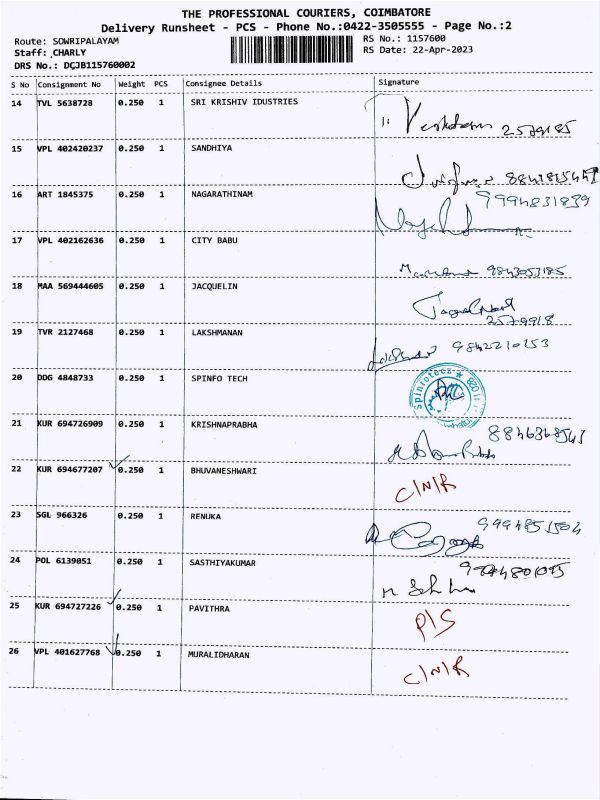 THE PROFESSIONAL COURIERS, COIMBATORE
Delivery Runsheet - PCS - Phone No.:0422-3505555 - Page No.:2
Route: SOWRIPALAYAM
RS No.: 1157600
Staff: CHARLY
RS Date: 22-Apr-2023
DRS No.: DCJB115760002
S No Consignment No Weight PCS Consignee Details Signature
14 TVL 5638728 0.250 1 SRI KRISHIV IDUSTRIES
2579185
15 VPL 402420237 0.250 1 SANDHIYA
16 ART 1845375 0.250 1 NAGARATHINAM 9994831839
17 VPL 402162636 0.250 1 CITY BABU
9843053185
18 MAA 569444605 0.250 1 JACQUELIN
2579918
19 TVR 2127468 0.250 1 LAKSHMANAN
9842210253
20 DDG 4848733 0.250 1 SPINFO TECH
spinfotecz
21 KUR 694726909 0.250 1 KRISHNAPRABHA
22 KUR 694677207 0.250 1 BHUVANESHWARI
C/N/R
23 SGL 966326 0.250 1 RENUKA
24 POL 6139051 0.250 1 SASTHIYAKUMAR
25 KUR 694727226 0.250 1 PAVITHRA
P/S
26 VPL 401627768 0.250 1 MURALIDHARAN
C/N/R